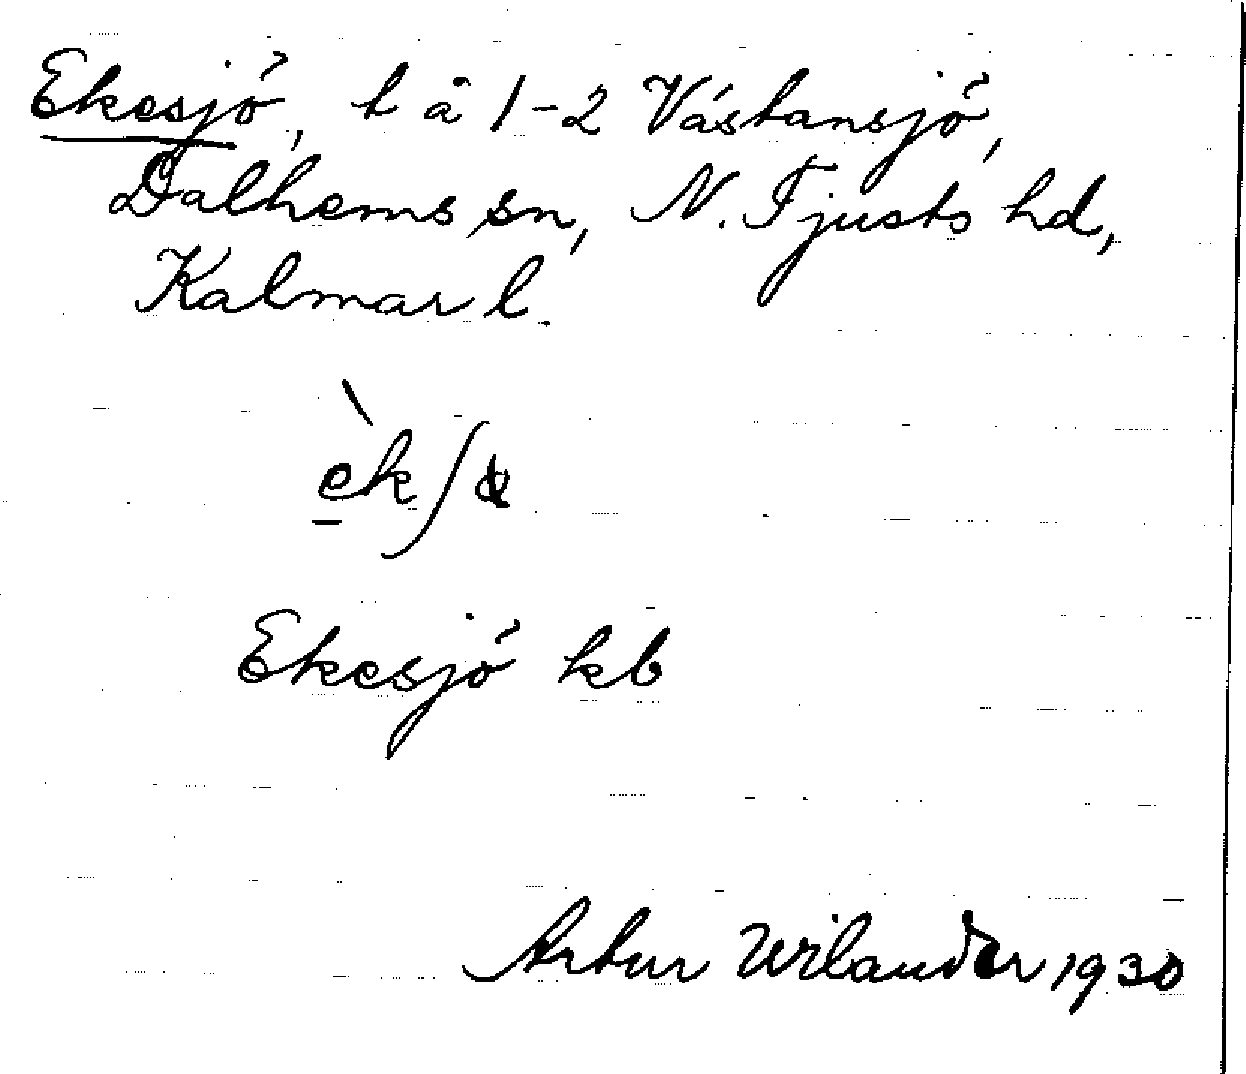 Ekesjö, t å 1-2 Västansjö,
Dalhems sn, N. Tjusts hd,
Kalmar l.
Ekesjö kb
Artur Wilander 1930